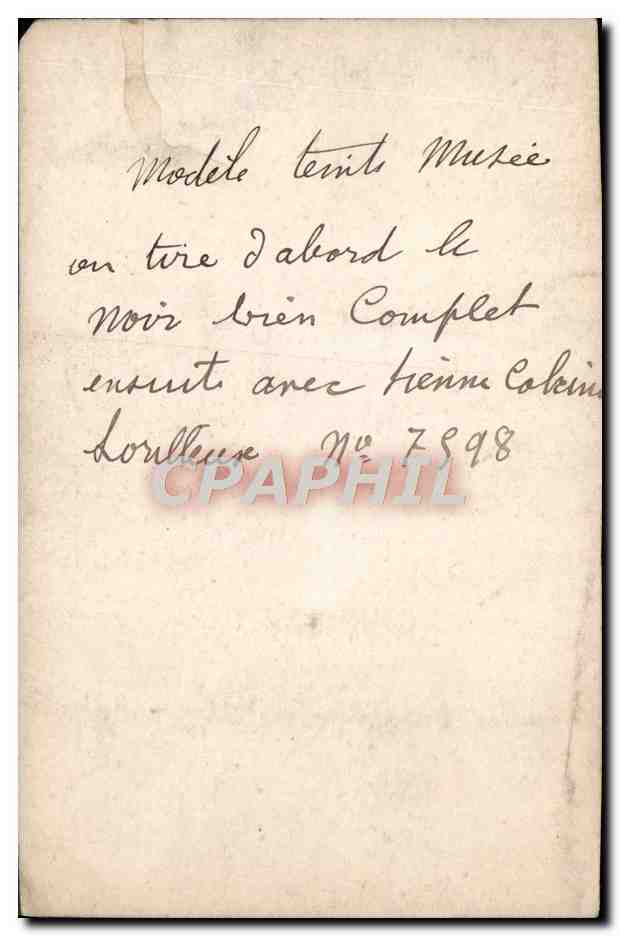 Modèle teinte Musée
on tire d'abord le
Noir bien Complet
ensuite avec sienne
Nº 7598
CPAPHIL